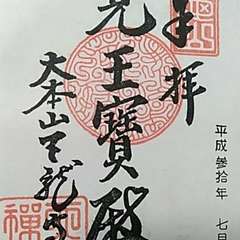 奉拝
平成参拾年 七月
覚王寳殿
大本山天龍寺